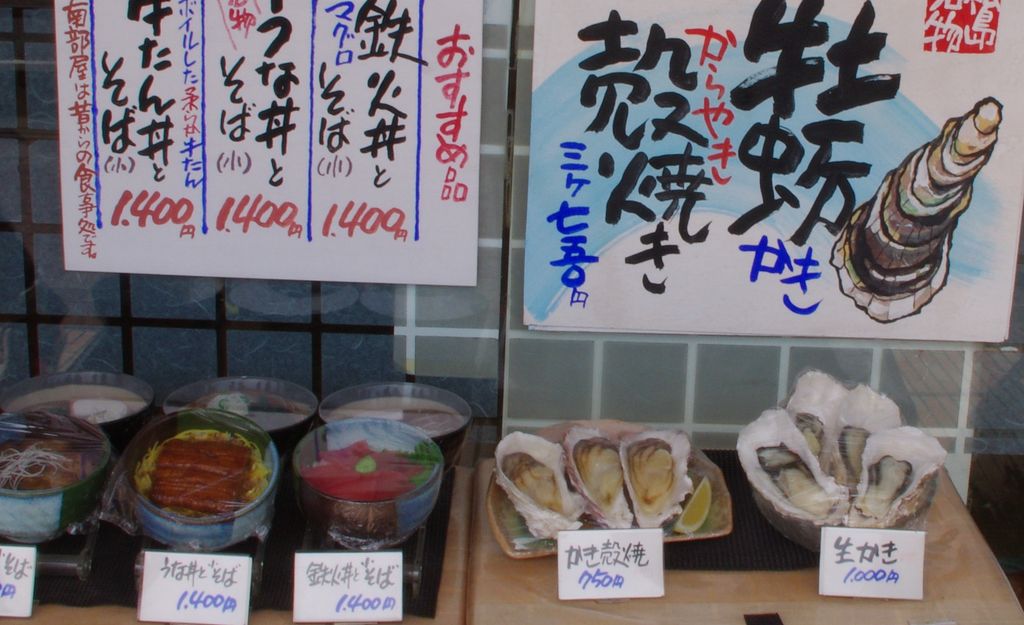 おすすめ品
鉄火丼と
マグロ
そば(小)
1.400円
うな丼と
そば(小)
1.400円
牛たん丼と
そば(小)
1.400円
南部屋は昔からの食事処です。
松島
名物
牡蛎
かき
からやき
殻焼き
三ヶ七五〇円
そば
円
うな丼とそば
1.400円
鉄火丼とそば
1.400円
かき殻焼
750円
生かき
1.000円